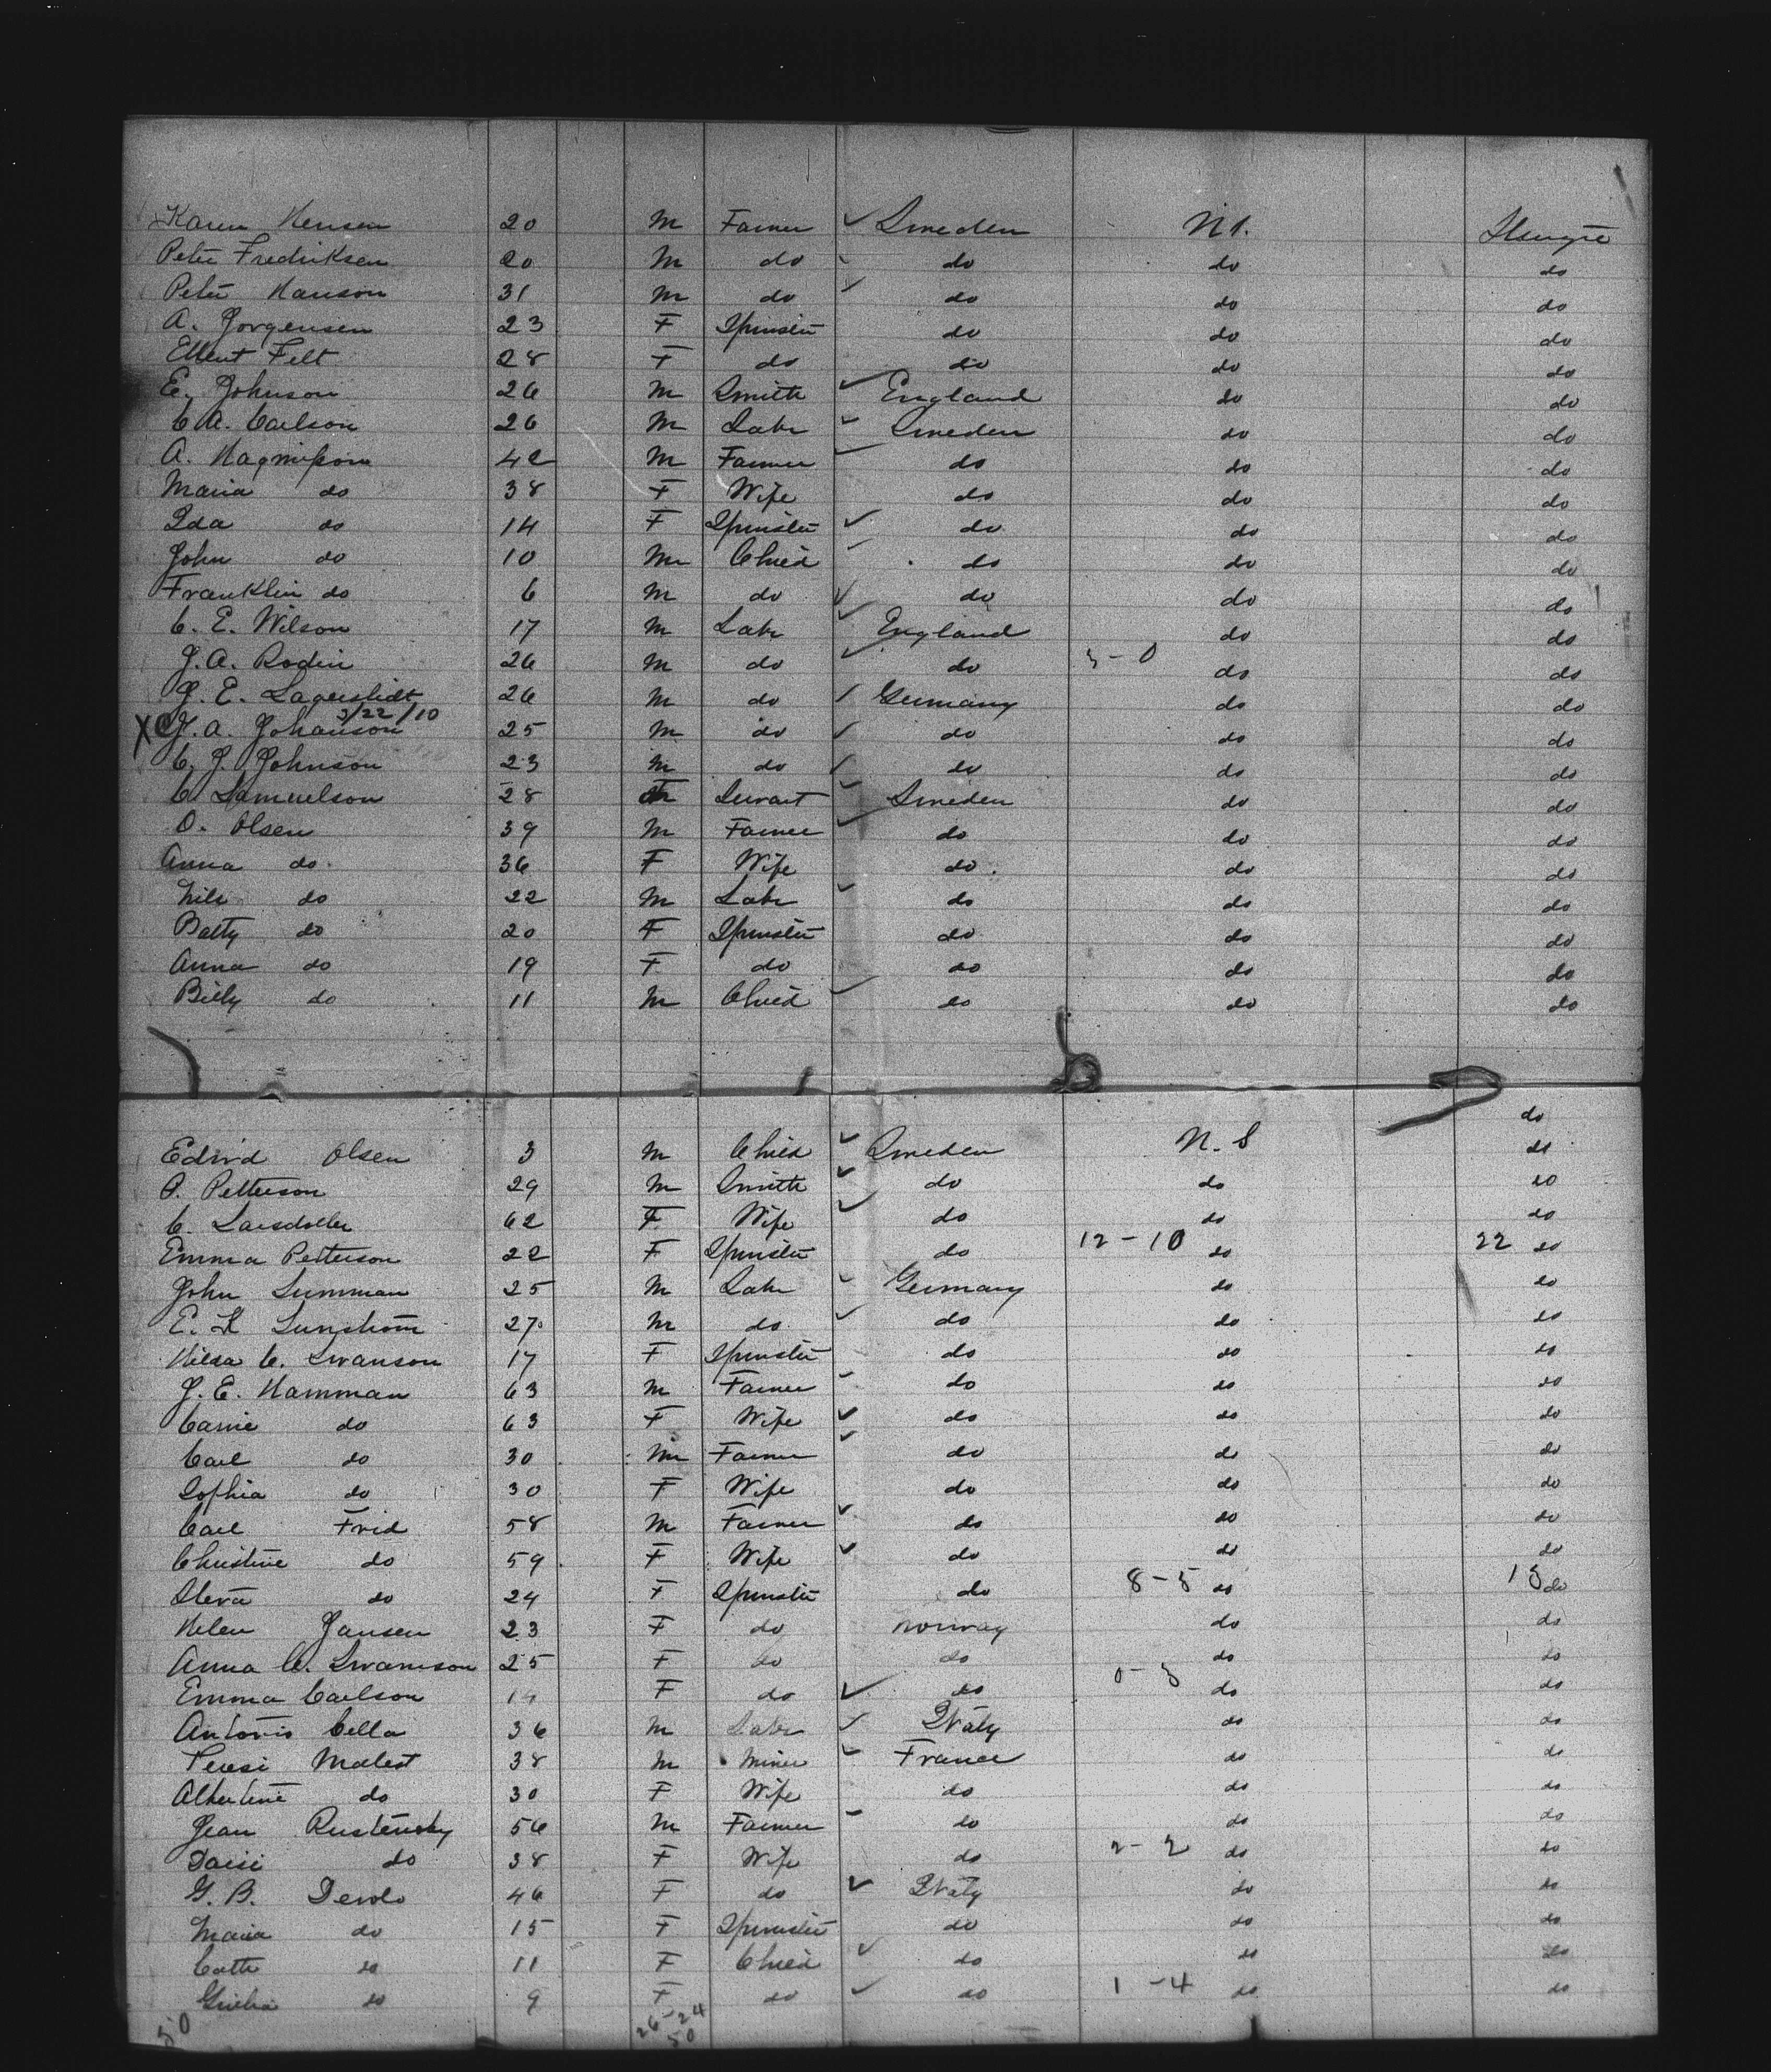 Karen Hensen 20 M Farmer Sweden N.S. Steerage
Peter Fredriksen 20 M do do do do
Peter Hanson 31 M do do do do
A. Jorgensen 23 F Spinster do do do
Ellent Felt 28 F do do do do
E. Johnson 26 M Smith England do do
C. A. Carlson 26 M Labr Sweden do do
A. Magnusson 42 M Farmer do do do
Maria do 38 F Wife do do do
Ida do 14 F Spinster do do do
John do 10 M Child do do do
Franklin do 6 M do do do do
C. E. Wilson 17 M Labr England do do
J. A. Rodin 26 M do do 3-0 do do
J. E. Lagerstidt 26 M do Germany do do
3/22/10
X J. A. Johanson 25 M do do do do
C. J. Johnson 23 M do do do do
C. Samuelson 28 Servant Sweden do do
O. Olsen 39 M Farmer do do do
Anna do 36 F Wife do do do
Nils do 22 M Labr do do do
Batty do 20 F Spinster do do do
Anna do 19 F do do do do
Billy do 11 M Child do do do
do
Edwrd Olsen 3 M Child Sweden N.S do
P. Petterson 29 M Smith do do do
C. Larsdotter 62 F Wife do do do
Emma Petterson 22 F Spinster do 12-10 do 22 do
John Summan 25 M Labr Germany do do
E. K Lunstrom 27 M do do do do
Hilda C. Swanson 17 F Spinster do do do
J. E. Hamman 63 M Farmer do do do
Carrie do 63 F Wife do do do
Carl do 30 M Farmer do do do
Sophia do 30 F Wife do do do
Carl Frid 58 M Farmer do do do
Christine do 59 F Wife do do do
Steva do 24 F Spinster do 8-5 do 13 do
Helen Jansen 23 F do Norway do do
Anna C. Swanson 25 F do do do do
Emma Carlson 14 F do do 0-3 do do
Antonio Cella 36 M Labr Italy do do
Teresi Malest 38 M Miner France do do
Albertine do 30 F Wife do do do
Jean Rustensky 56 M Farmer do do do
do 38 F Wife do 2-2 do do
G. B. Devoto 46 F do Italy do do
Maria do 15 F Spinster do do do
Catti do 11 F Child do do do
Giulia do 9 F do do 1-4 do do
50 26-24
50